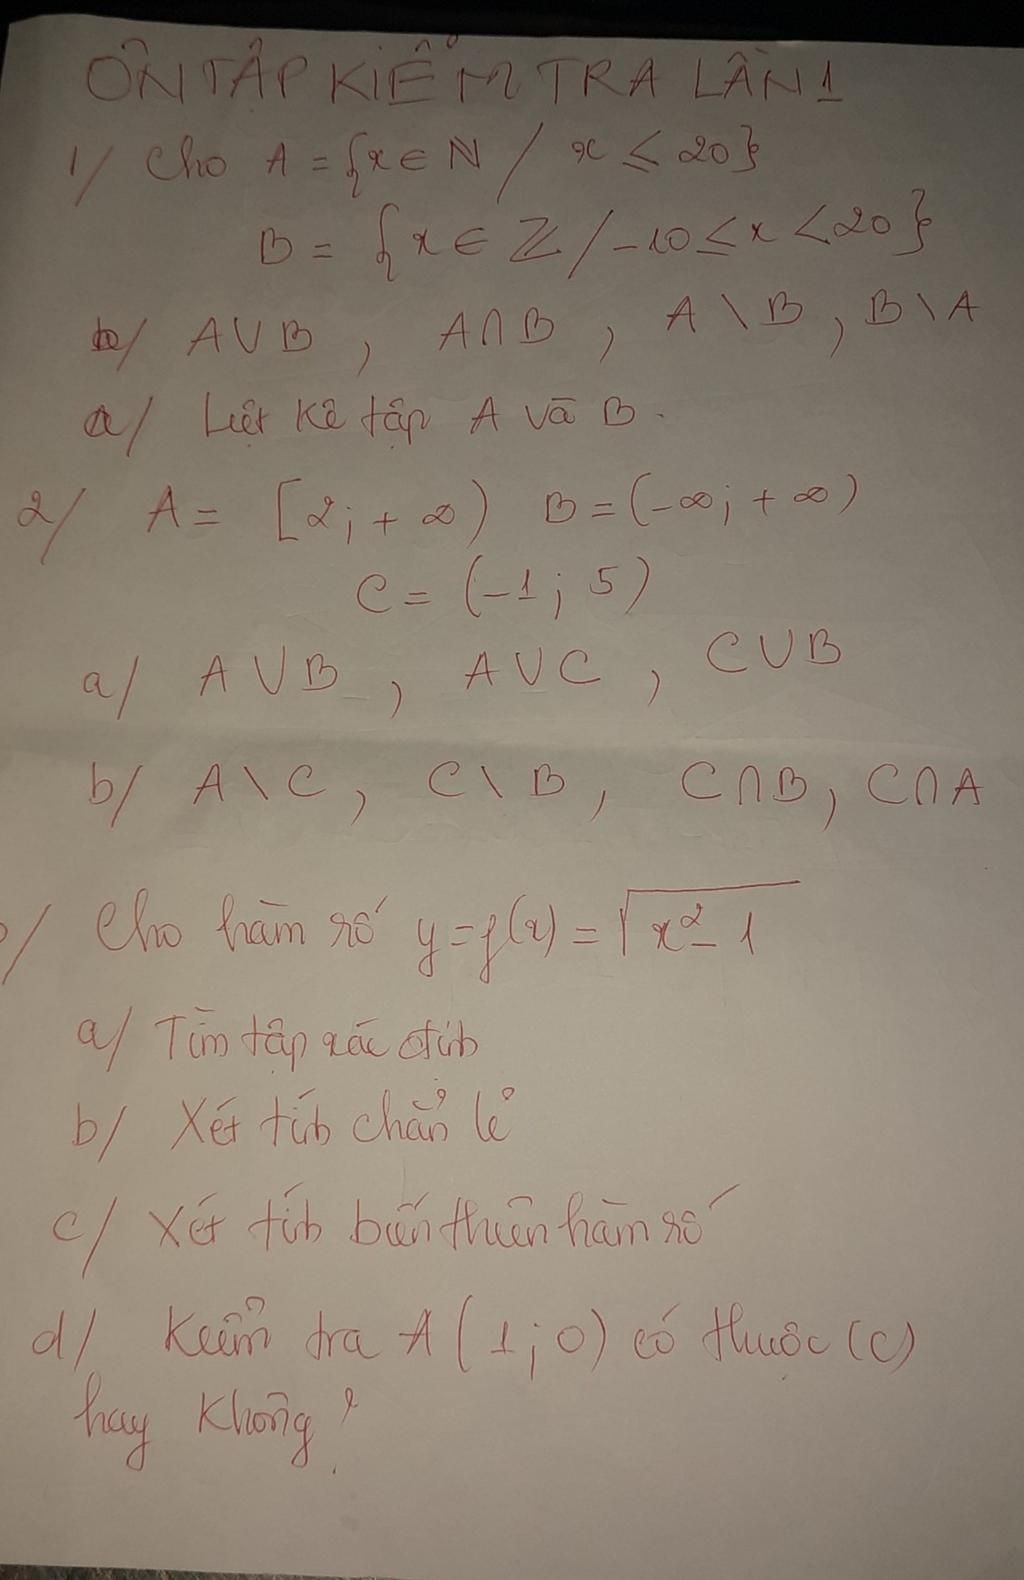 ÔN TẬP KIỂM TRA LẦN 1
1/ Cho A = {x ∈ N / x ≤ 20}
B = {x ∈ Z / -10 ≤ x < 20}
b/ A ∪ B , A ∩ B , A \ B , B \ A
a/ Liệt kê tập A và B.
2/ A = [2; + ∞) B = (-∞; + ∞)
C = (-1; 5)
a/ A ∪ B , A ∪ C , C ∪ B
b/ A \ C , C \ B , C ∩ B, C ∩ A
/ Cho hàm số y = f(x) = √x² - 1
a/ Tìm tập xác định
b/ Xét tính chẵn lẻ
c/ Xét tính biến thiên hàm số
d/ Kiểm tra A (1; 0) có thuộc (C)
hay không?